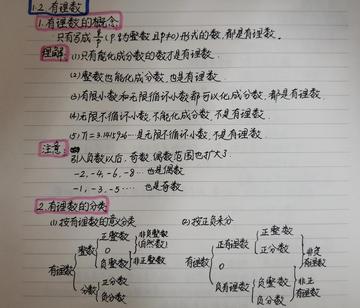 1.2 有理数
1.有理数的概念
只有写成 (p,q为整数且p≠0)形式的数,都是有理数.
理解: (1)只有能化成分数的数才是有理数.
(2)整数也能化成分数,也是有理数.
(3)有限小数和无限循环小数都可以化成分数,都是有理数.
(4)无限不循环小数,不能化成分数,不是有理数.
(5) π=3.1415926…是无限不循环小数,不是有理数.
注意:
引入负数以后,奇数,偶数范围也扩大了.
-2,-4,-6,-8…也是偶数
-1,-3,-5……也是奇数
2.有理数的分类
(1)按有理数的意义分类 (2)按正负来分
有理数 整数 正整数 0 负整数 非负整数(自然数) 非正整数
分数 正分数 负分数
有理数 正有理数 正整数 正分数 非负有理数
0
负有理数 负整数 负分数 非正有理数